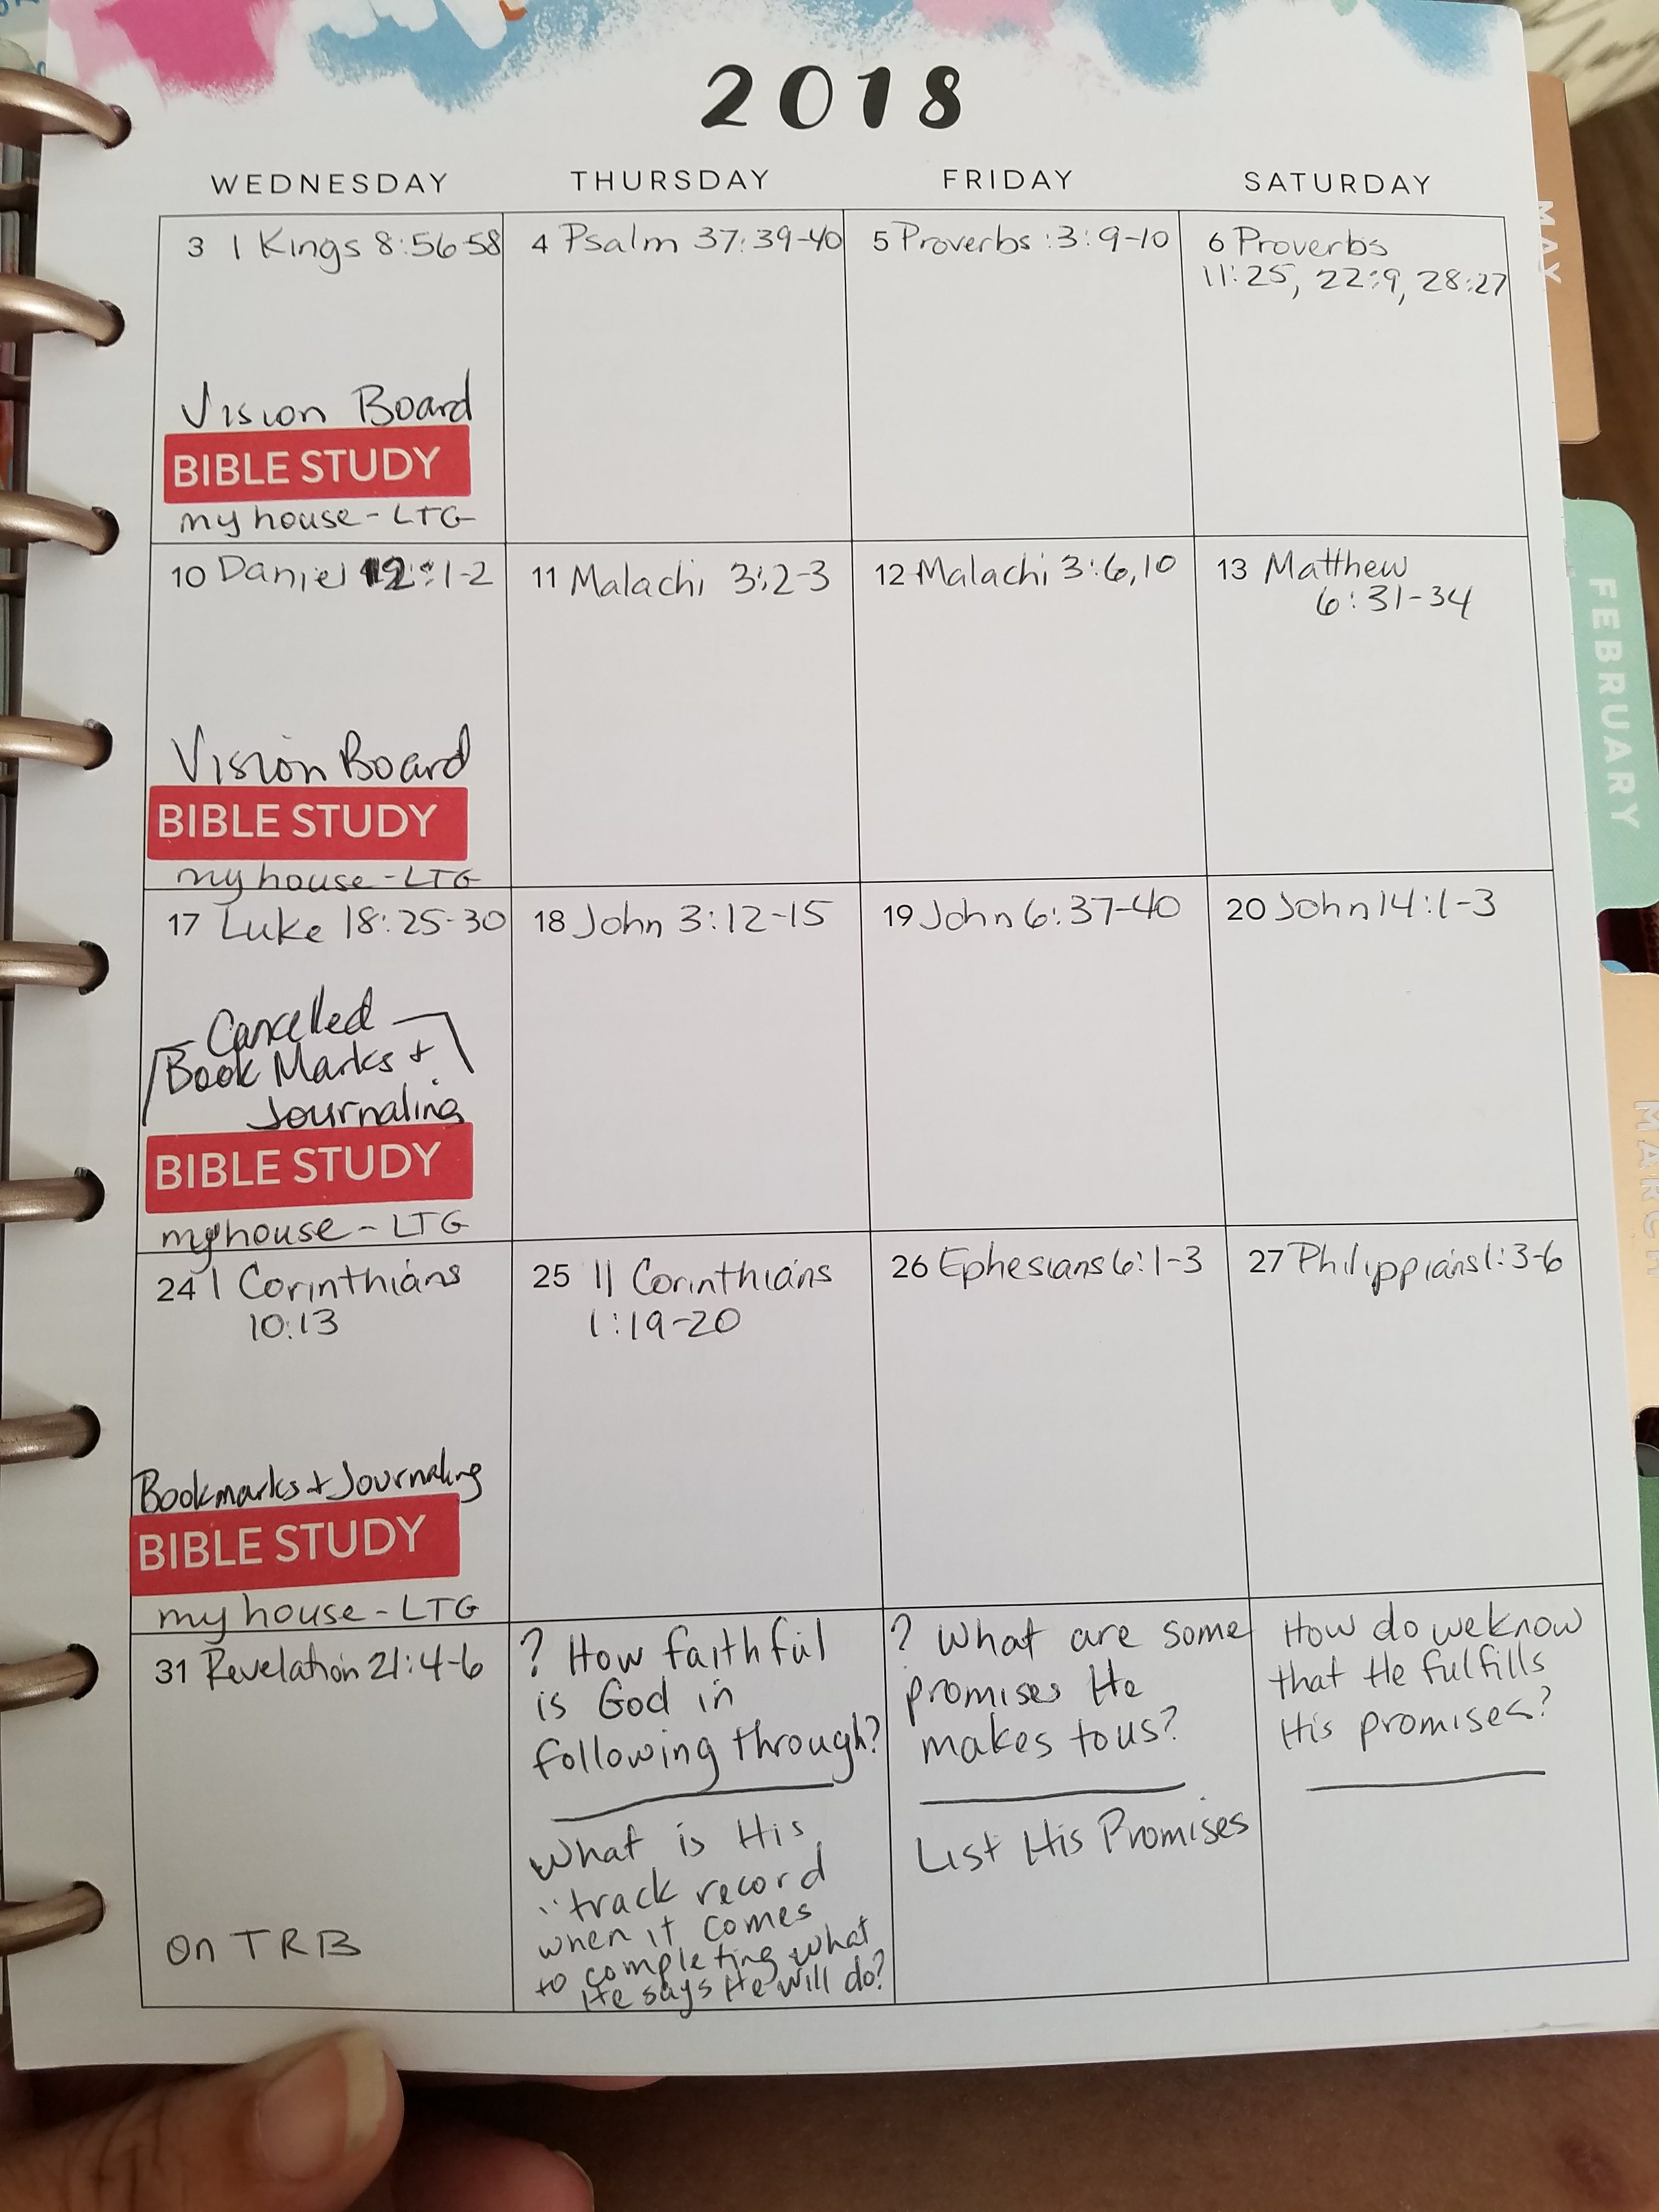 2018
WEDNESDAY THURSDAY FRIDAY SATURDAY
3 1 Kings 8:56-58
Vision Board
BIBLE STUDY
my house - LTG
4 Psalm 37:39-40
5 Proverbs :3:9-10
6 Proverbs
11:25, 22:9, 28:27
10 Daniel 12:1-2
Vision Board
BIBLE STUDY
my house - LTG
11 Malachi 3:2-3
12 Malachi 3:6,10
13 Matthew
6:31-34
17 Luke 18:25-30
Cancelled
Book Marks +
Journaling
BIBLE STUDY
my house - LTG
18 John 3:12-15
19 John 6:37-40
20 John 14:1-3
24 1 Corinthians
10:13
Bookmarks + Journaling
BIBLE STUDY
my house - LTG
25 11 Corinthians
1:19-20
26 Ephesians 6:1-3
27 Philippians 1:3-6
31 Revelation 21:4-6
On TRB
? How faithful
is God in
following through?
What is His
"track record
when it comes
to completing what
He says He will do?
? What are some
promises He
makes to us?
List His Promises
How do we know
that He fulfills
His promises?
MAY
FEBRUARY
MARCH